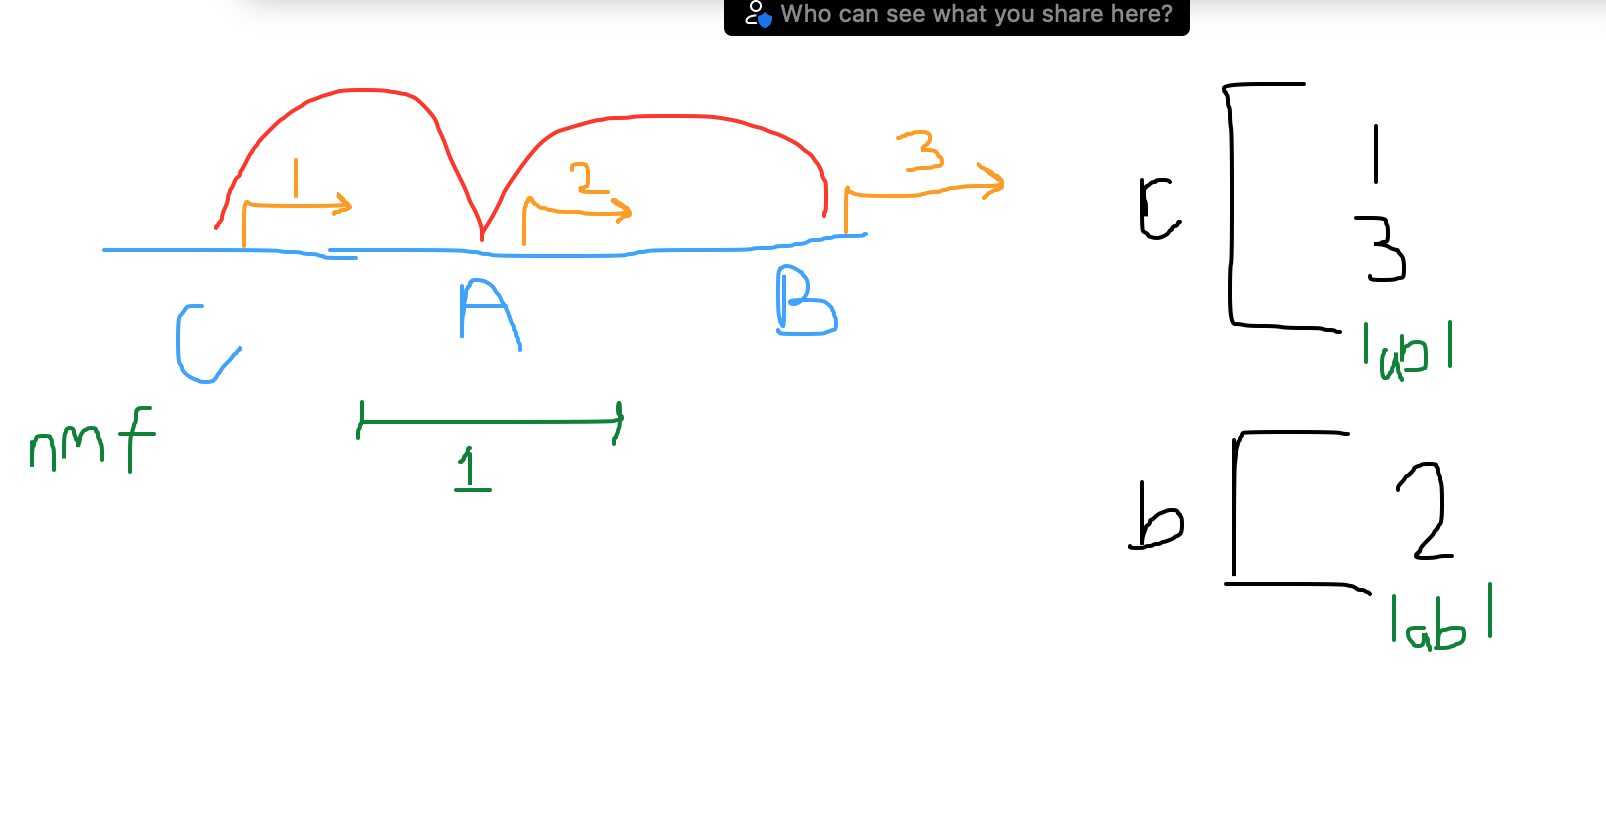 Who can see what you share here?
1
2
3
C
A
B
nmf
1
c
1
3
lab1
b
2
lab1